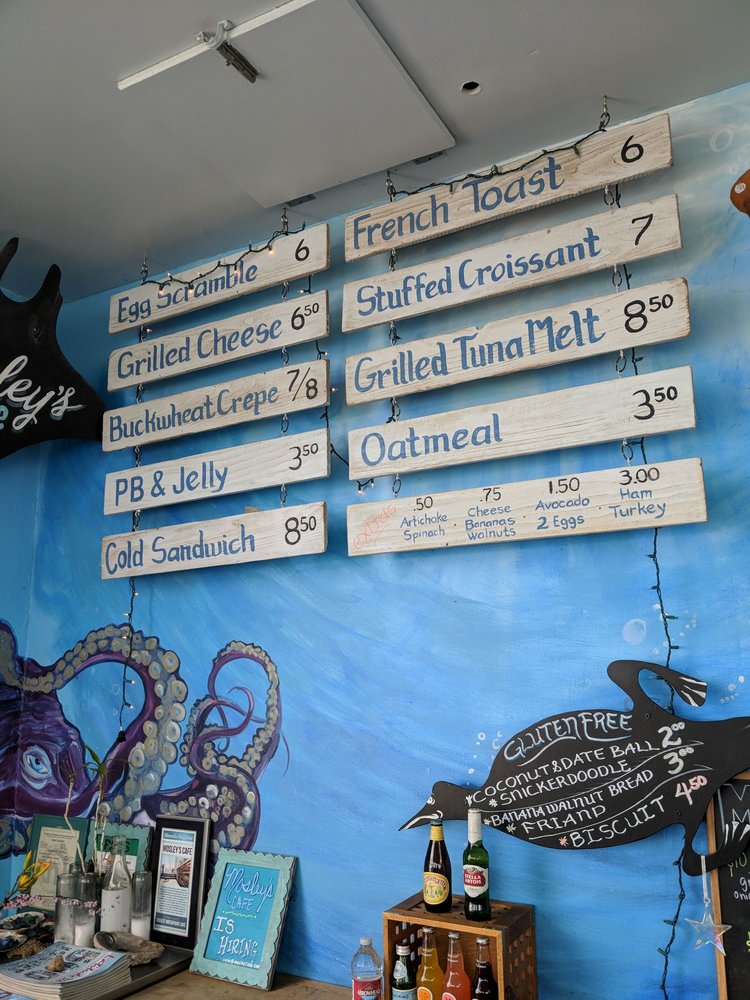 Egg Scramble 6
Grilled Cheese 6 50
Buckwheat Crepe 7/8
PB & Jelly 3 50
Cold Sandwich 8 50
French Toast 6
Stuffed Croissant 7
Grilled Tuna Melt 8 50
Oatmeal 3 50
extras
.50
Artichoke
Spinach
.75
Cheese
Bananas
Walnuts
1.50
Avocado
2 Eggs
3.00
Ham
Turkey
ley's
GLUTEN FREE
*COCONUT & DATE BALL 2 00
*SNICKERDOODLE 3 00
*BANANA WALNUT BREAD
*FRIAND
*BISCUIT 4.50
MOSLEY'S CAFE
Mosleys
CAFE
IS
HIRING
STELLA
ARTOIS
ARROWHEAD